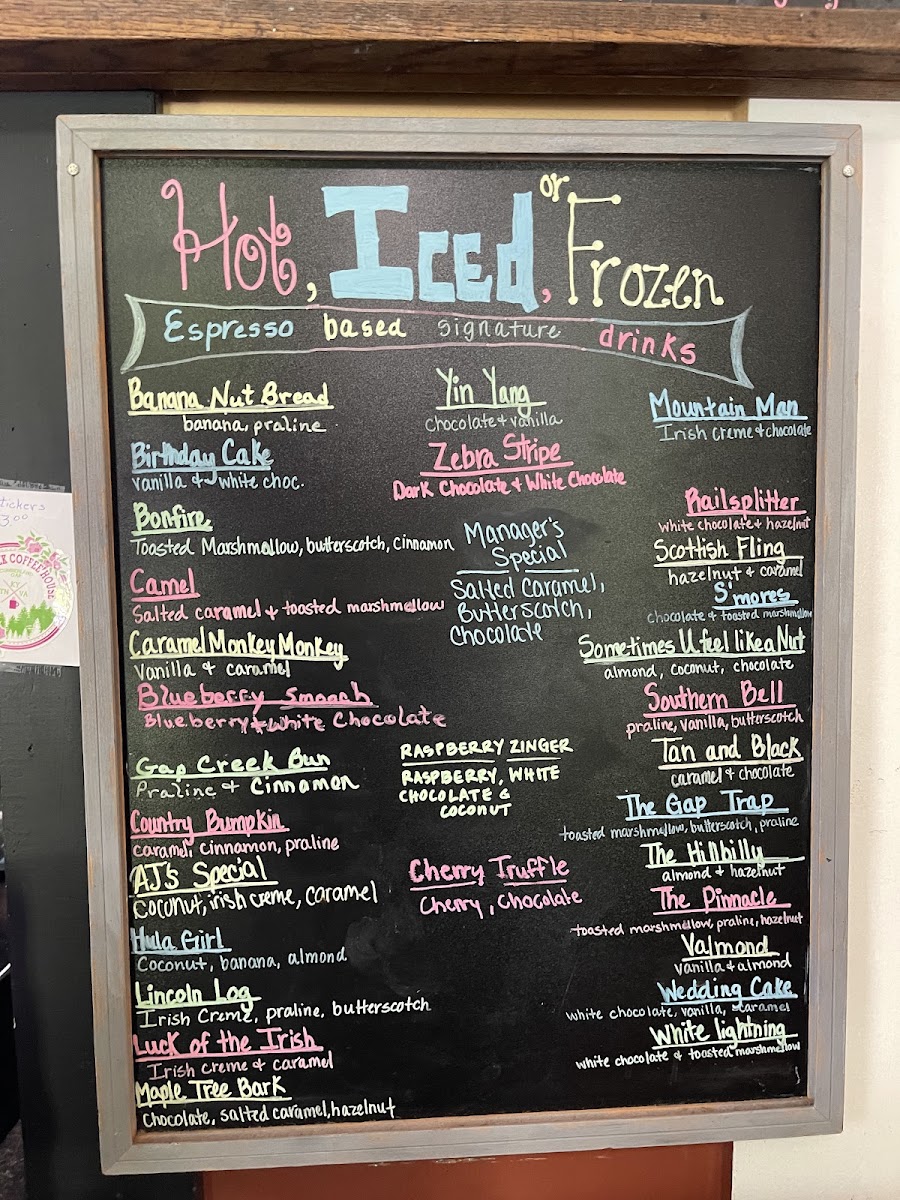 Hot, Iced, or Frozen
Espresso based signature drinks
Banana Nut Bread
banana, praline
Birthday Cake
vanilla & white choc.
Bonfire
Toasted Marshmellow, butterscotch, cinnamon
Camel
Salted caramel & toasted marshmellow
Caramel Monkey Monkey
Vanilla & caramel
Blueberry smooch
Blueberry & White Chocolate
Gap Creek Bun
Praline & Cinnamon
Country Bumpkin
caramel, cinnamon, praline
AJ's Special
Coconut, irish creme, caramel
Hula Girl
Coconut, banana, almond
Lincoln Log
Irish Creme, praline, butterscotch
Luck of the Irish
Irish creme & caramel
Maple Tree Bark
Chocolate, salted caramel, hazelnut
Yin Yang
chocolate & vanilla
Zebra Stripe
Dark Chocolate & White Chocolate
Manager's
Special
Salted Caramel,
Butterscotch,
Chocolate
RASPBERRY ZINGER
RASPBERRY, WHITE
CHOCOLATE &
COCONUT
Cherry Truffle
Cherry, Chocolate
Mountain Man
Irish creme & chocolate
Railsplitter
white chocolate & hazelnut
Scottish Fling
hazelnut & caramel
S'mores
chocolate & toasted marshmellow
Sometimes U feel like a Nut
almond, coconut, chocolate
Southern Bell
praline, vanilla, butterscotch
Tan and Black
caramel & chocolate
The Gap Trap
toasted marshmellow, butterscotch, praline
The Hillbilly
almond & hazelnut
The Pinnacle
toasted marshmellow, praline, hazelnut
Valmond
vanilla & almond
Wedding Cake
white chocolate, vanilla, caramel
White lightning
white chocolate & toasted marshmellow
tickers
3.00
K COFFEE HOUSE
KY
TN
VA